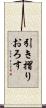 引き摺り
おろす